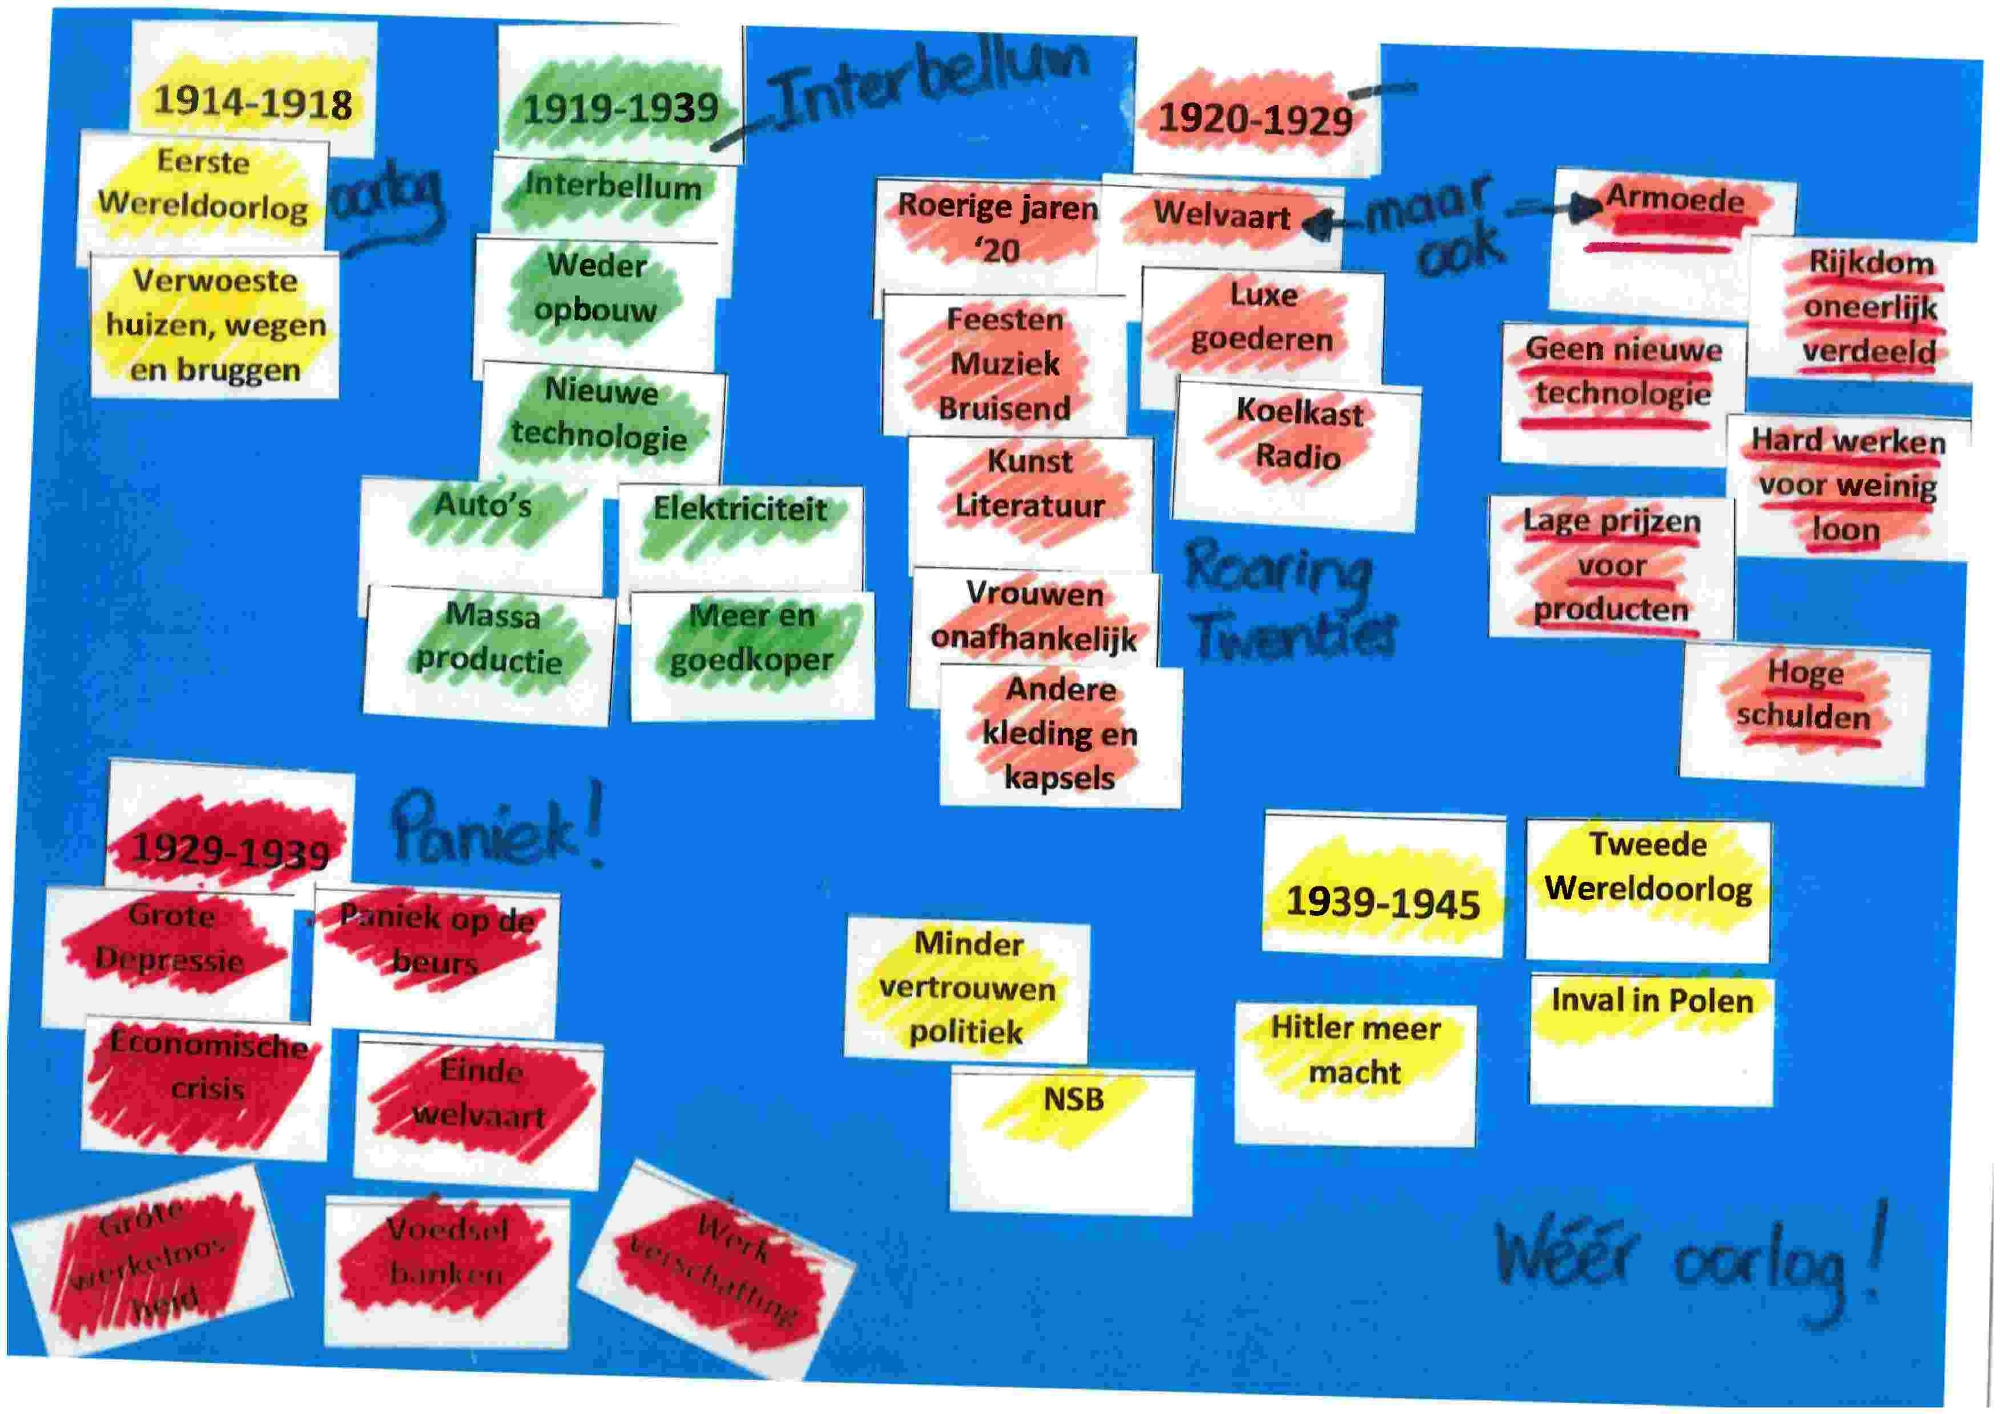 1914-1918
Eerste
Wereldoorlog
oorlog
Verwoeste
huizen, wegen
en bruggen
1919-1939
Interbellum
Interbellum
Weder
opbouw
Nieuwe
technologie
Auto's
Elektriciteit
Massa
productie
Meer en
goedkoper
1920-1929
Roerige jaren
‘20
Feesten
Muziek
Bruisend
Kunst
Literatuur
Vrouwen
onafhankelijk
Andere
kleding en
kapsels
Welvaart
Luxe
goederen
Koelkast
Radio
Roaring
Twenties
maar
ook
Armoede
Rijkdom
oneerlijk
verdeeld
Geen nieuwe
technologie
Hard werken
voor weinig
loon
Lage prijzen
voor
producten
Hoge
schulden
1929-1939
Paniek!
Grote
Depressie
Paniek op de
beurs
Economische
crisis
Einde
welvaart
Grote
werkeloos
heid
Voedsel
banken
Werk
verschatting
Minder
vertrouwen
politiek
NSB
1939-1945
Tweede
Wereldoorlog
Hitler meer
macht
Inval in Polen
Wéér oorlog!